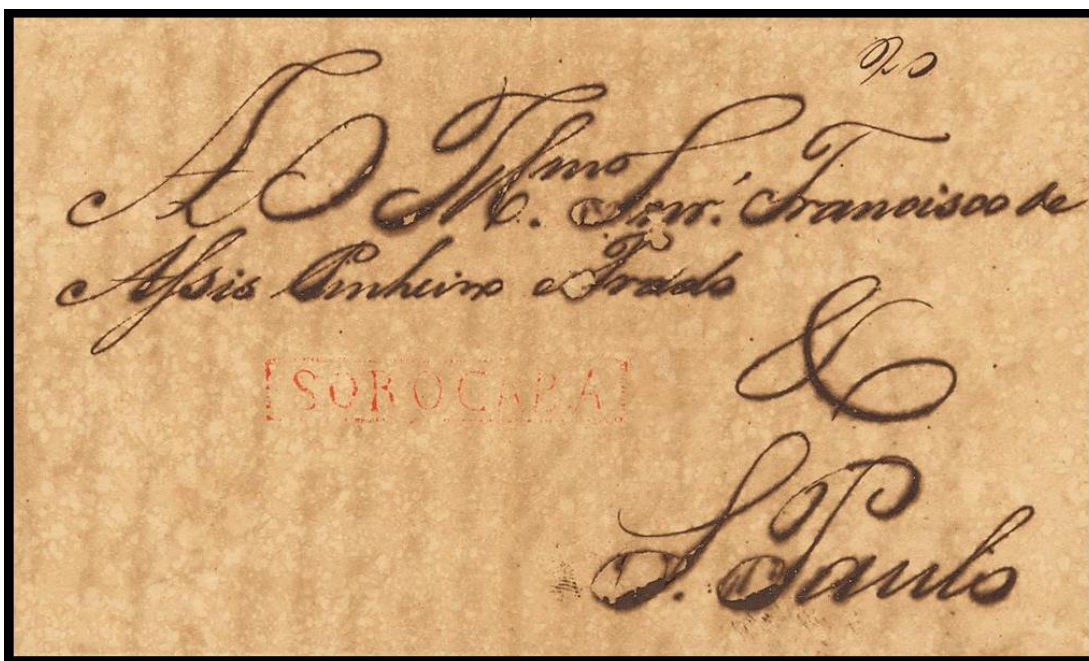 AO Illmo. Senr. Francisco de
Assis Pinheiro e Prado
&C
SOROCABA
S. Paulo